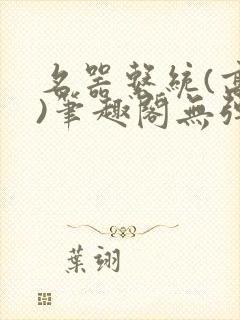 名器繫統(高
)筆趣閣無弹
葉翊